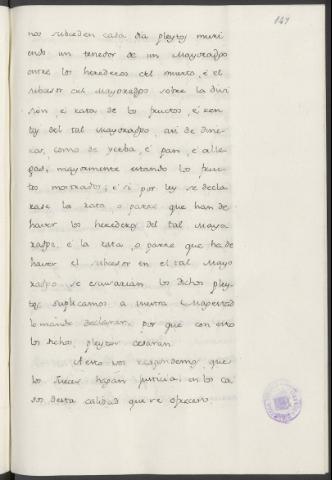 141
nos subceden cada dia pleytos muri
endo un tenedor de un Mayoradgo
entre los herederos del muerto, é el
subcesor del Mayoradgo sobre la divi
sión é rata de los fructos, é ren
tas del tal Mayoradgo, asi de dine-
ros, como de yerba, é pan, é alle
gado, mayormente estando los fruc-
tos mostrados; é si por ley se decla
rase la rata, o parte que han de
haver los herederos del tal Mayo
radgo, é la rata, o parte que ha de
haver el subcesor en el tal Mayo
radgo se escusarian los dichos pley
tos, suplicamos a vuestra Magestad
lo mande declarar, por que con esto
los dichos pleytos cesaran.
A esto vos respondemos que
los Jueces hagan justicia en los ca
sos desta calidad que se ofrecieren.